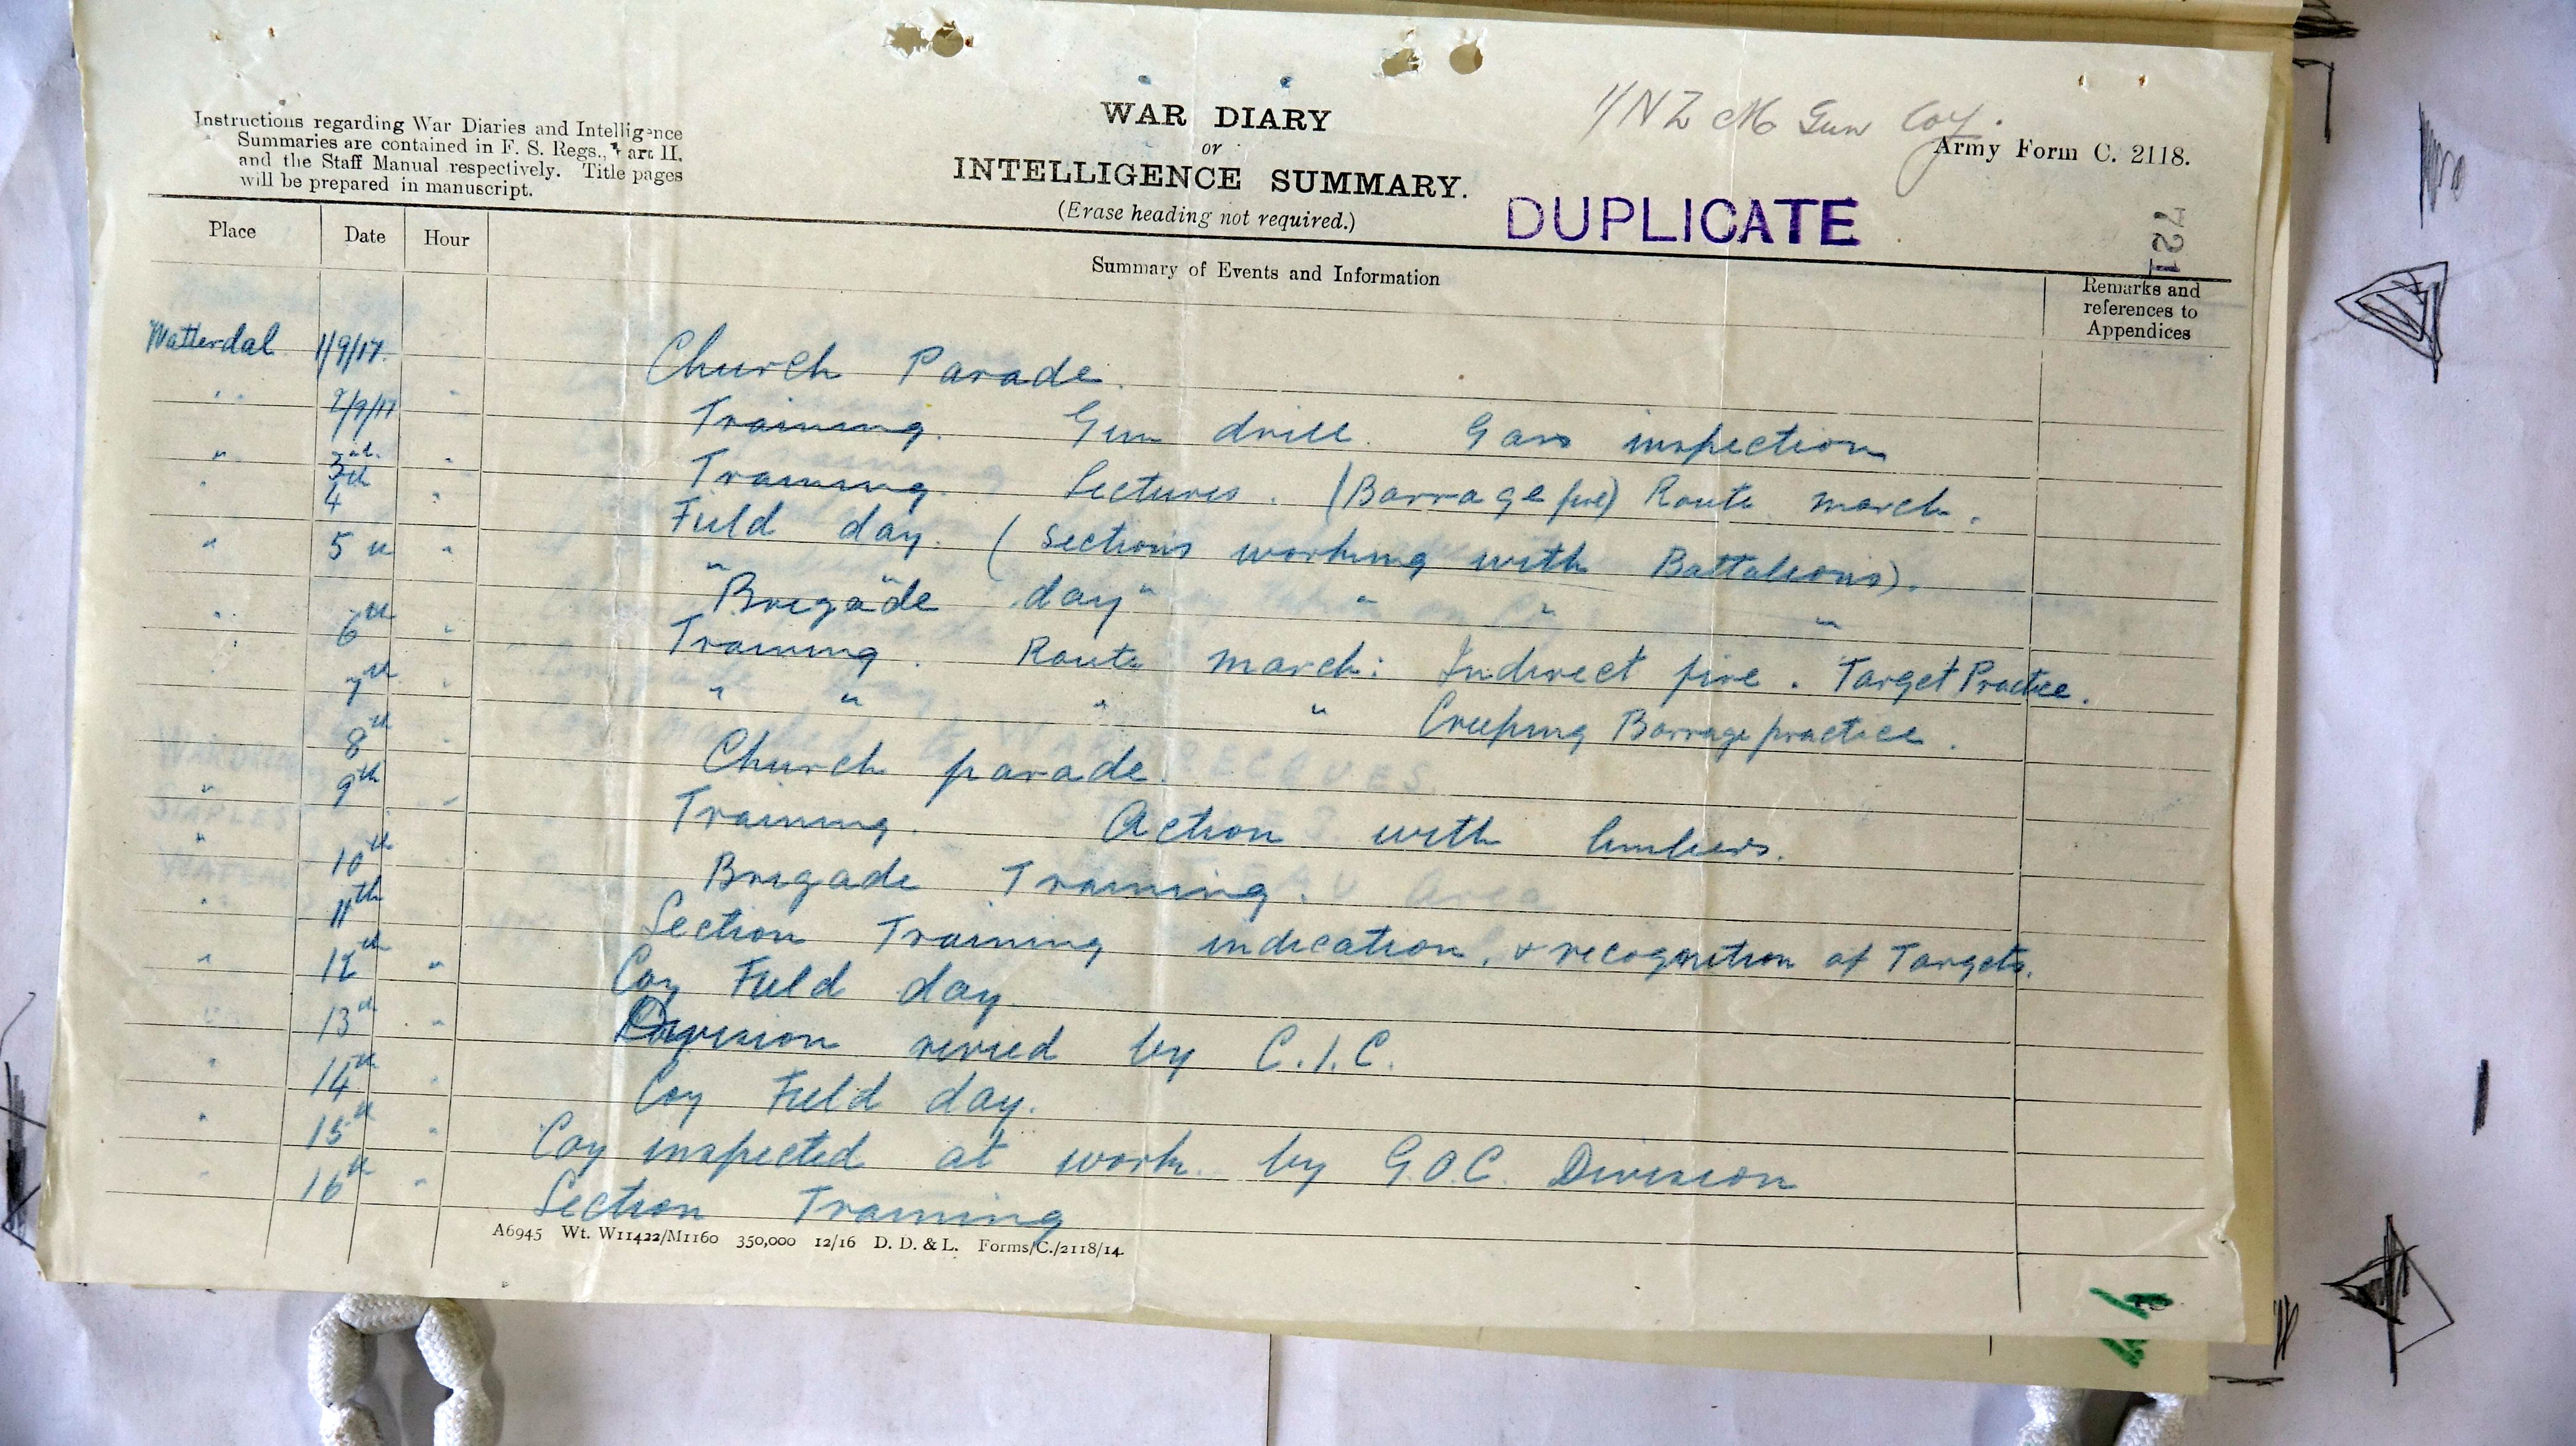 1/NZ M Gun Coy.
Instructions regarding War Diaries and Intelligence
Summaries are contained in F. S. Regs., Part II.
and the Staff Manual respectively. Title pages
will be prepared in manuscript.
WAR DIARY
or
INTELLIGENCE SUMMARY.
(Erase heading not required.)
Army Form C. 2118.
DUPLICATE
721
Place Date Hour Summary of Events and Information Remarks and
references to
Appendices
Watterdal 1/9/17. Church Parade.
" 2/9/17 " Training. Gun drill. Gas inspection
" 3rd. " Training. Lectures. (Barrage fire) Route march.
" 4th " Field day. (Sections working with Battalions).
" 5th " " Brigade day " " " "
" 6th " Training. Route march: Indirect fire. Target Practice.
" 7th " " " " " Creeping Barrage practice.
8th " Church parade.
" 9th " Training. Action with limbers.
" 10th Brigade Training.
" 11th Section Training indication, & recognition of Targets.
" 12th " Coy Field day
13th " Division revied by C.I.C.
" 14th " Coy Field day.
" 15th " Coy inspected at work by G.O.C. Division
" 16th " Section Training
A6945 Wt. W11422/M1160 350,000 12/16 D. D. & L. Forms/C./2118/14.